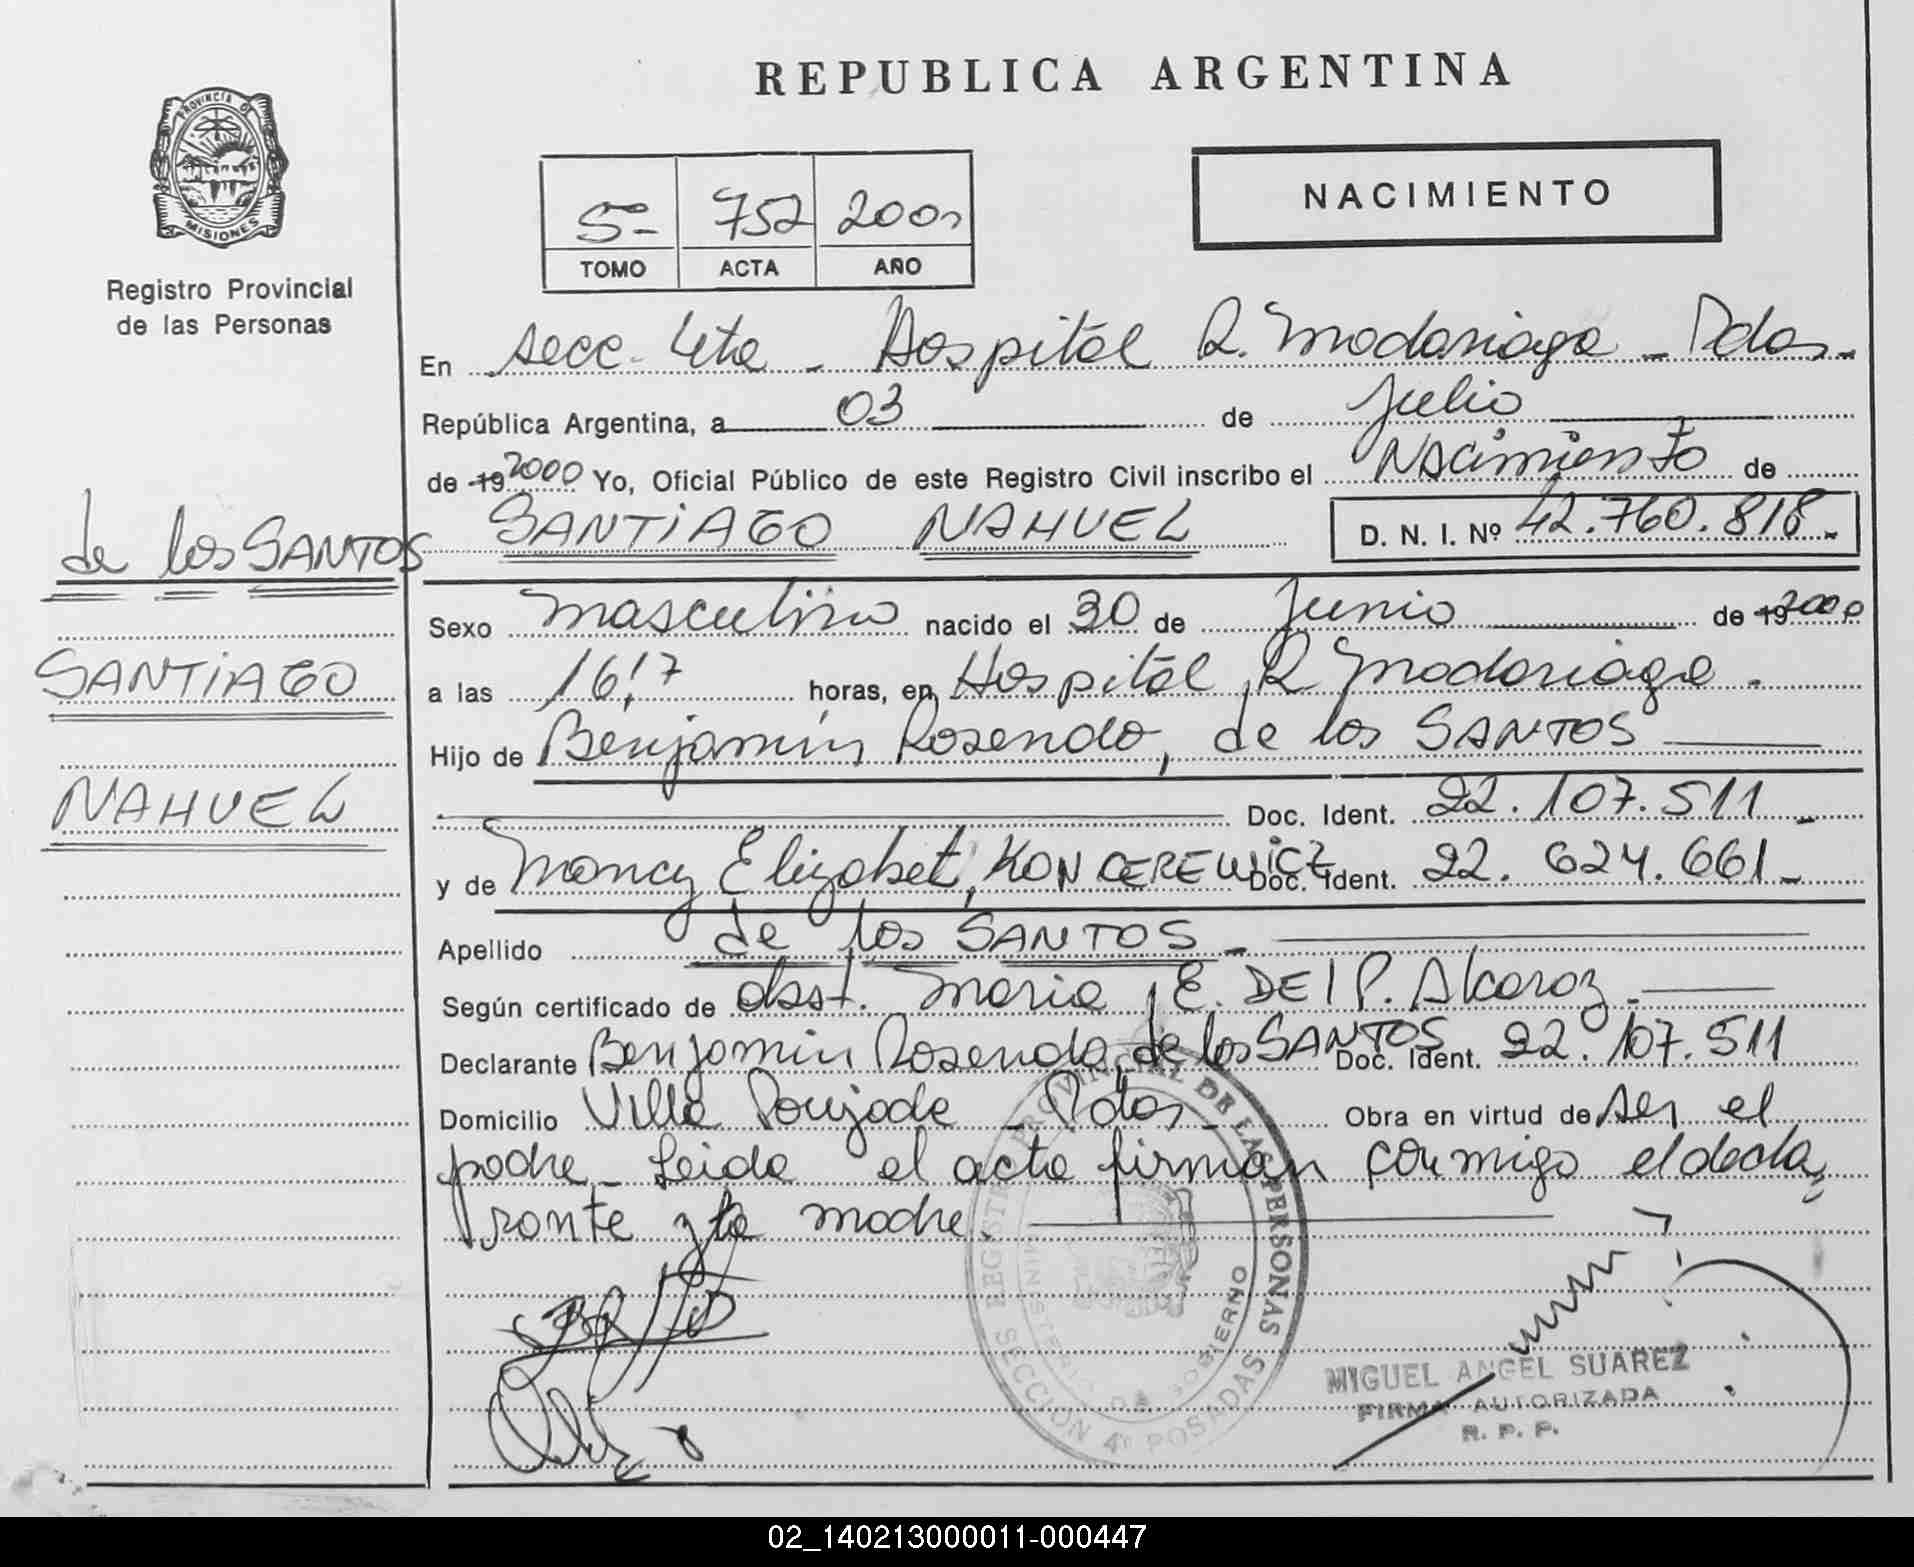 REPUBLICA ARGENTINA
PROVINCIA DE MISIONES
Registro Provincial
de las Personas
5º 752 2000
TOMO ACTA AÑO
NACIMIENTO
En secc. 4ta - Hospital R. Madariaga - Pdas.
República Argentina, a 03 de Julio
de 19 2000 Yo, Oficial Público de este Registro Civil inscribo el Nacimiento de
SANTIAGO NAHUEL D. N. I. Nº 42.760.818.-
de los SANTOS
SANTIAGO
NAHUEL
Sexo masculino nacido el 30 de Junio de 19 2000
a las 16:7 horas, en Hospital R Madariaga.
Hijo de Benjamin Rosendo, de los SANTOS
Doc. Ident. 22.107.511-
y de Nancy Elizabet, KONCEREWICZ Doc. Ident. 22.624.661-
Apellido de los SANTOS-
Según certificado de obst. Maria E. DEL P. Alcaraz.
Declarante Benjamin Rosendo, de los SANTOS Doc. Ident. 22.107.511
Domicilio Villa Poujade - Pdas- Obra en virtud de ser el
padre- Leida el acta firman conmigo el decla
rante y la madre.
REGISTRO PROVINCIAL DE LAS PERSONAS
MINISTERIO DE GOBIERNO
SECCION 4º POSADAS
MIGUEL ANGEL SUAREZ
FIRMA AUTORIZADA
R. P. P.
02_140213000011-000447